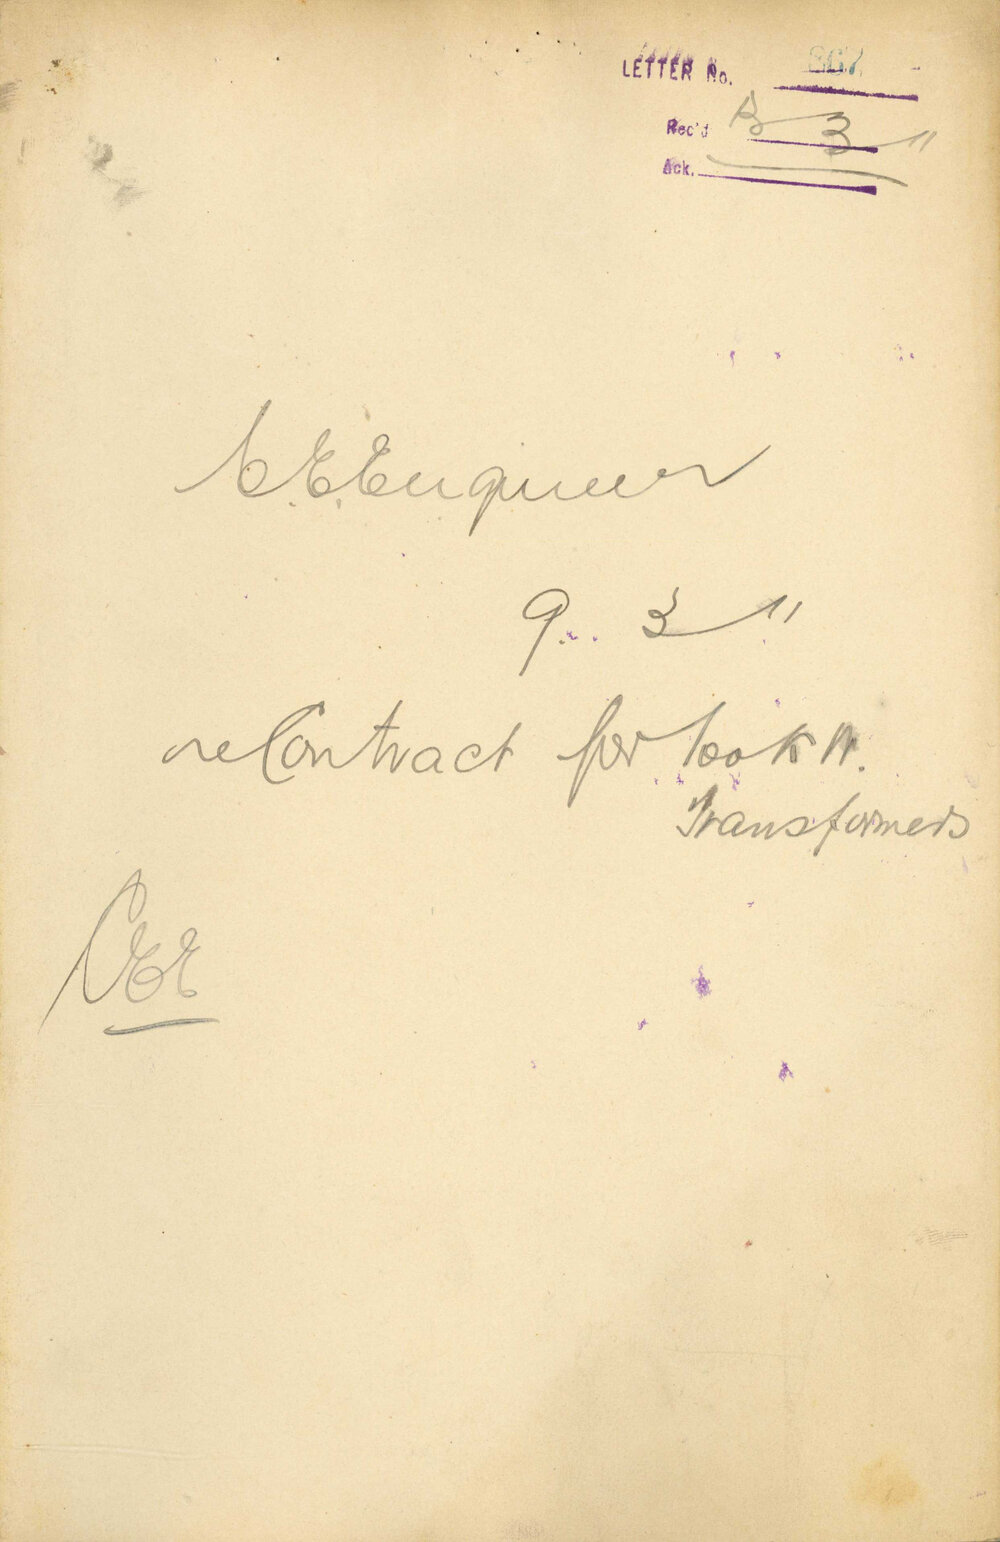 LETTER No. 867
Rec'd 13 3 11
Ack.
C. E. Engineer
9. 3 11
re Contract for 100 K.W.
Transformers
CEE